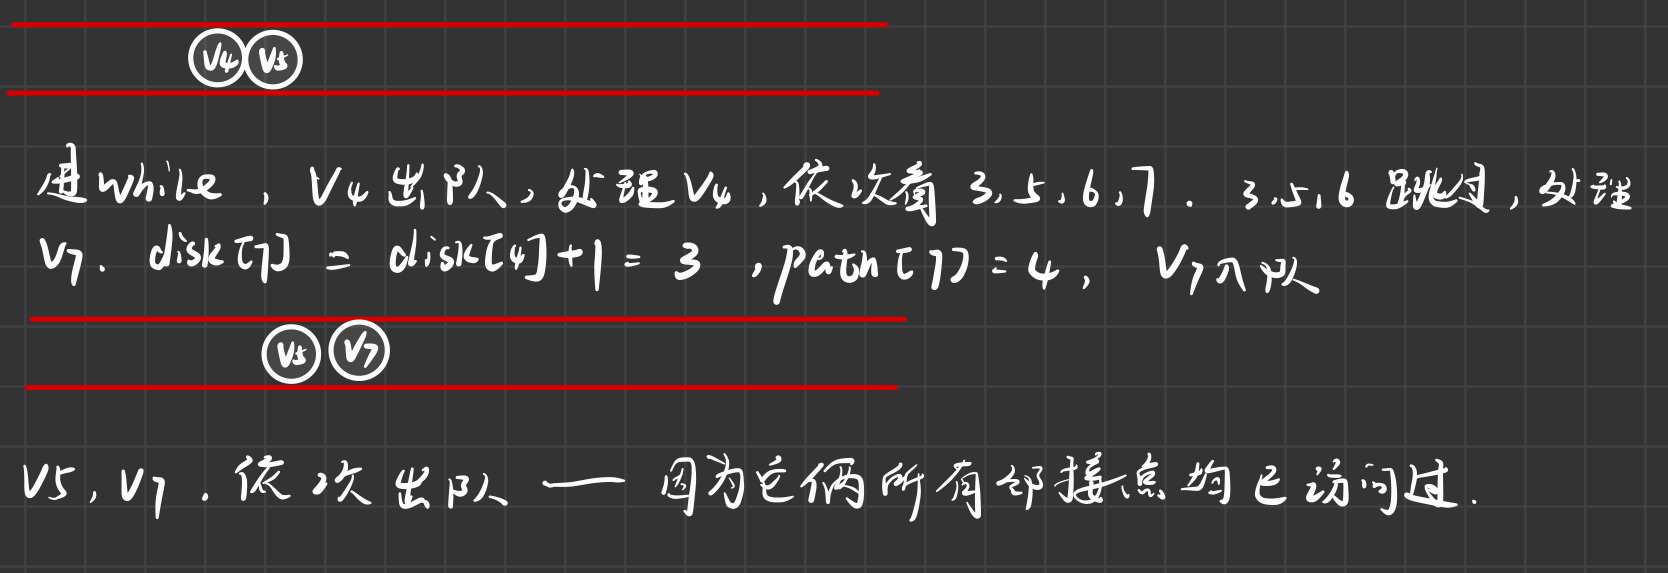 V4 V5
进while，V4出队，处理V4，依次看 3,5,6,7. 3,5,6 跳过，处理
V7. disk[7] = disk[4]+1 = 3 ，path[7] = 4， V7入队
V5 V7
V5, V7. 依次出队 —— 因为它俩所有邻接点均已访问过.